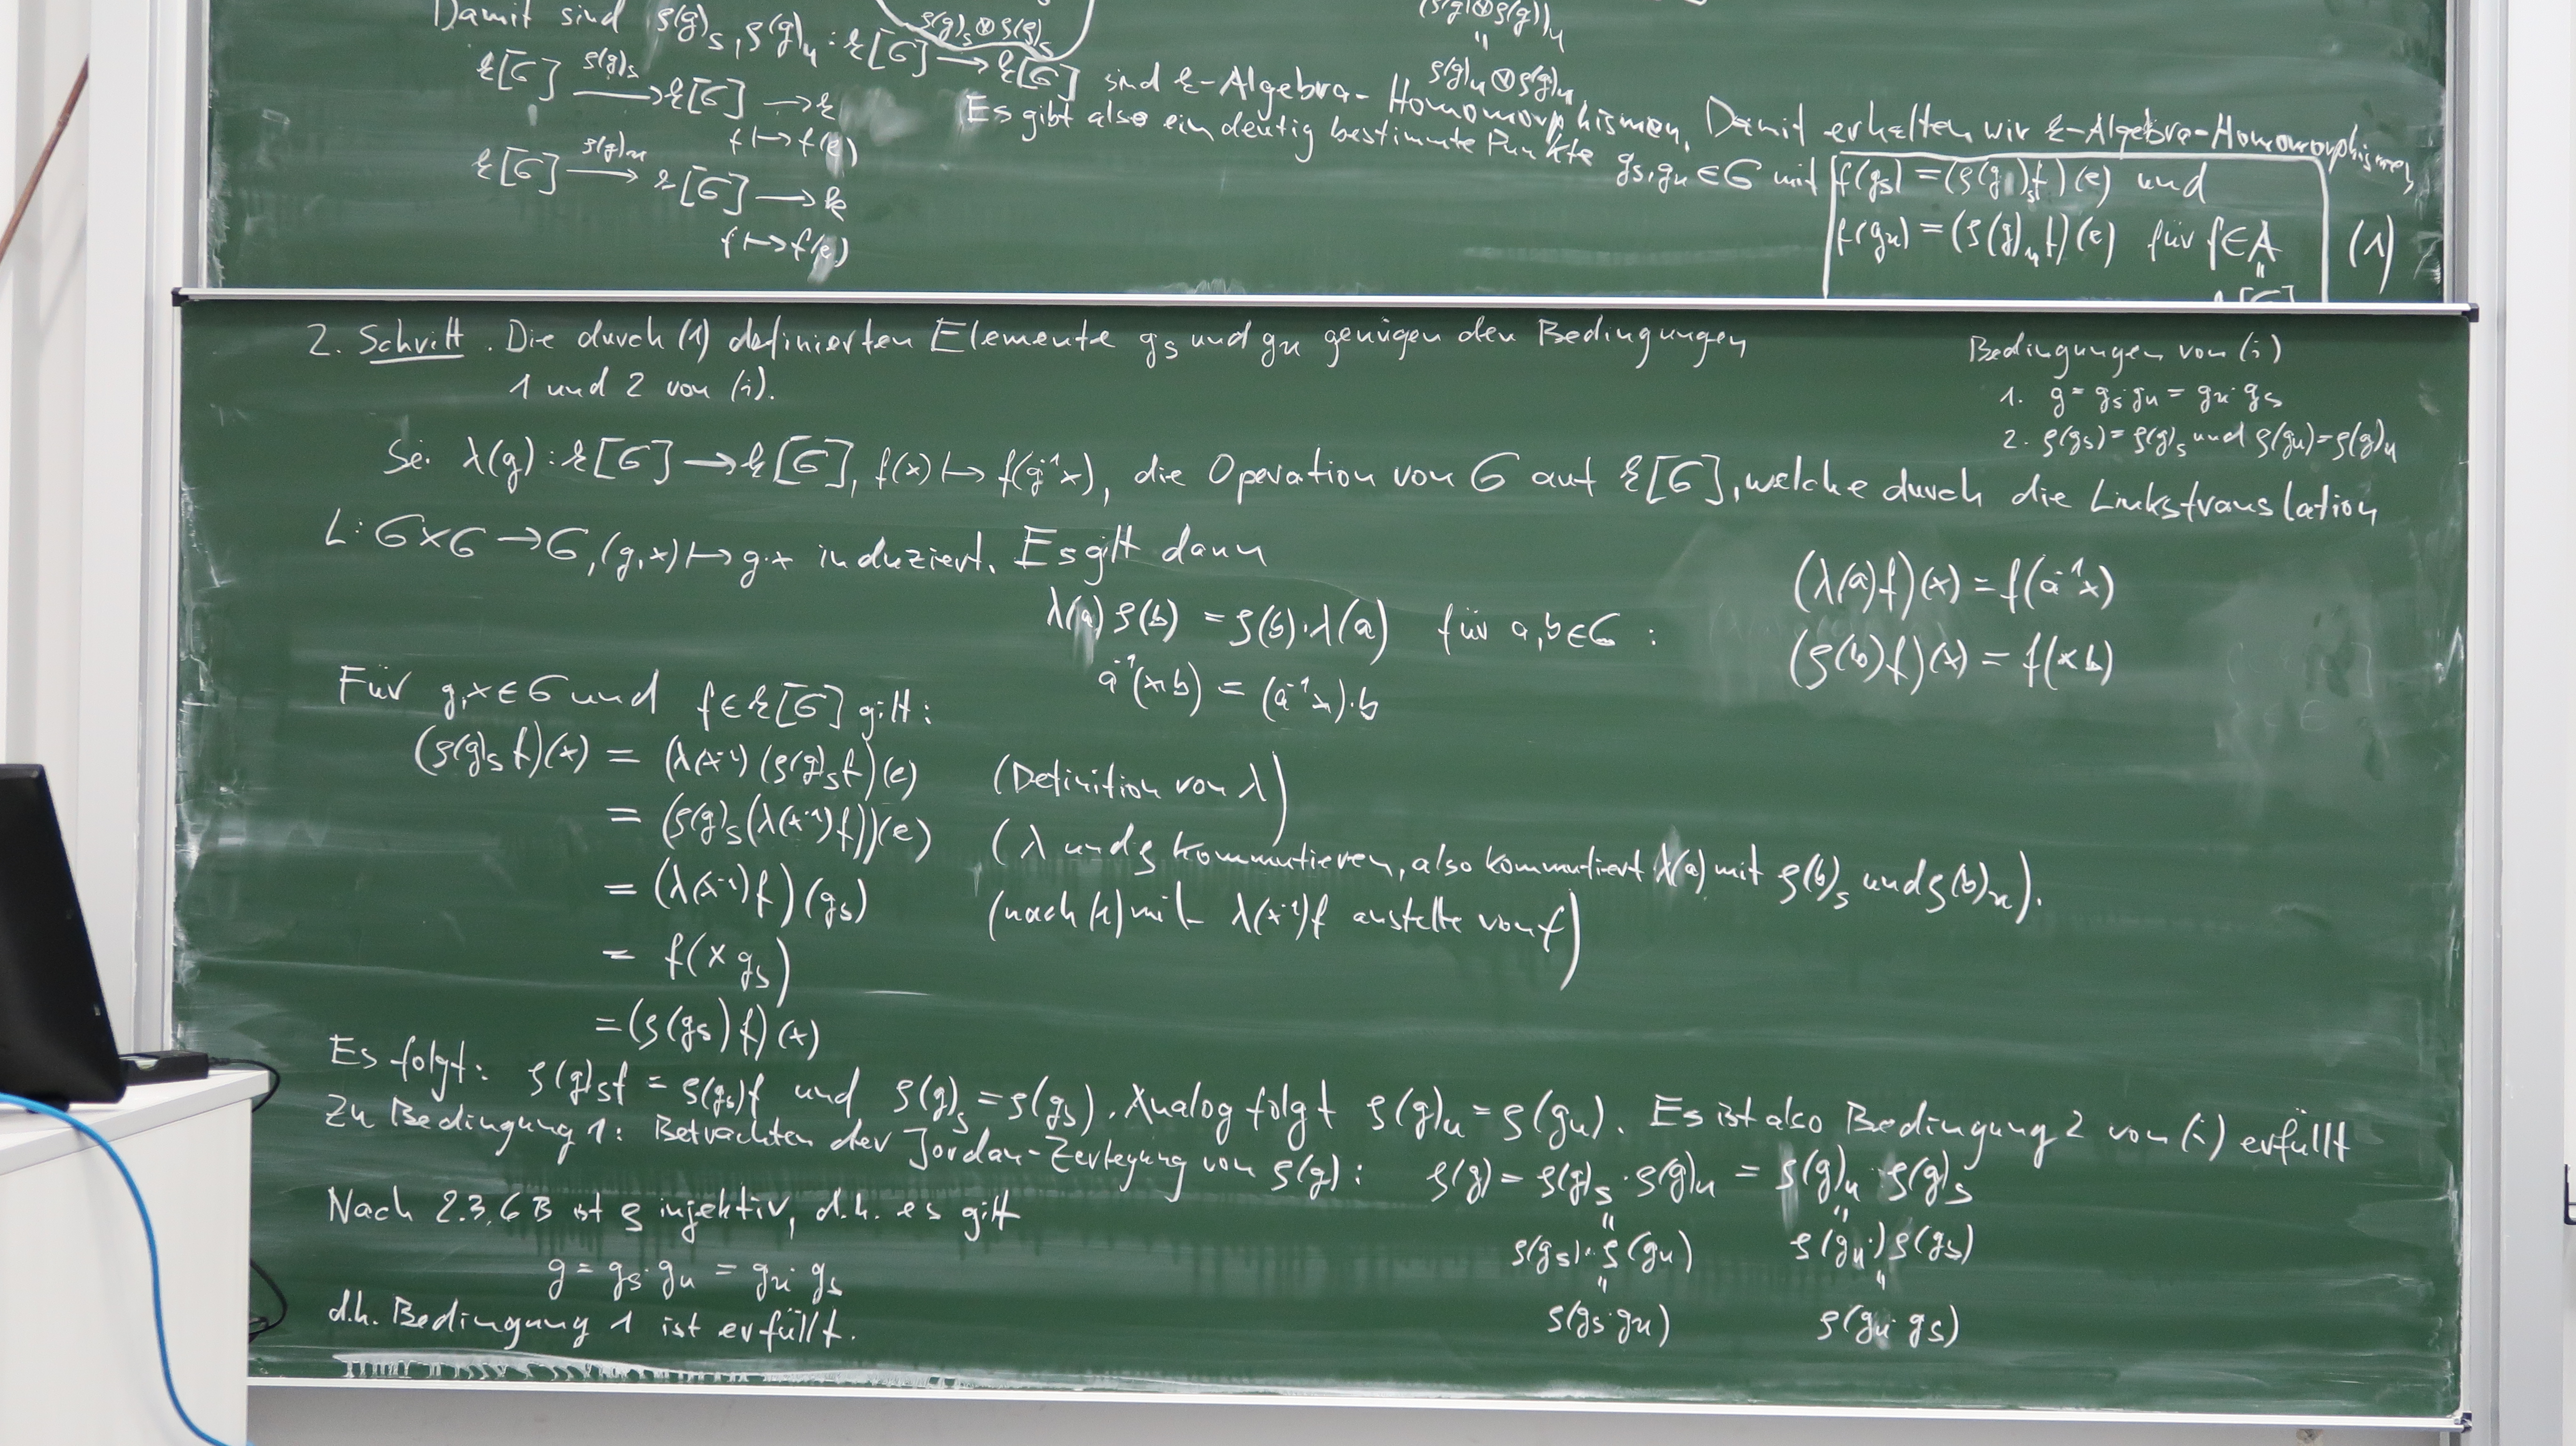 Damit sind ρ(g)ₛ, ρ(g)ᵤ : k[G] → k[G] sind k-Algebra-Homomorphismen. Damit erhalten wir k-Algebra-Homomorphismen,
ρ(g)ₛ⊗ρ(g)ₛ
(ρ(g)⊗ρ(g))ᵤ
"
ρ(g)ᵤ⊗ρ(g)ᵤ
k[G] —ρ(g)ₛ→ k[G] → k
f ↦ f(e)
k[G] —ρ(g)ᵤ→ k[G] → k
f ↦ f(e)
Es gibt also eindeutig bestimmte Punkte gₛ, gᵤ ∈ G mit f(gₛ) = (ρ(g)ₛf)(e) und
f(gᵤ) = (ρ(g)ᵤf)(e) für f∈A (1)
"
k[G]
2. Schritt. Die durch (1) definierten Elemente gₛ und gᵤ genügen den Bedingungen
1 und 2 von (i).
Bedingungen von (i)
1. g = gₛ·gᵤ = gᵤ·gₛ
2. ρ(gₛ) = ρ(g)ₛ und ρ(gᵤ) = ρ(g)ᵤ
Sei λ(g) : k[G] → k[G], f(x) ↦ f(g⁻¹x), die Operation von G auf k[G], welche durch die Linkstranslation
L: G×G → G, (g,x) ↦ g·x induziert. Es gilt dann
λ(a) ρ(b) = ρ(b)·λ(a) für a,b∈G :
a⁻¹(xb) = (a⁻¹x)·b
(λ(a)f)(x) = f(a⁻¹x)
(ρ(b)f)(x) = f(xb)
Für g,x∈G und f∈k[G] gilt:
(ρ(g)ₛf)(x) = (λ(x⁻¹)(ρ(g)ₛf)(e) (Definition von λ)
= (ρ(g)ₛ(λ(x⁻¹)f))(e) (λ und ρ kommutieren, also kommutiert λ(a) mit ρ(b)ₛ und ρ(b)ᵤ).
= (λ(x⁻¹)f)(gₛ) (nach (1) mit λ(x⁻¹)f anstelle von f)
= f(x gₛ)
= (ρ(gₛ)f)(x)
Es folgt: ρ(g)ₛf = ρ(gₛ)f und ρ(g)ₛ = ρ(gₛ). Analog folgt ρ(g)ᵤ = ρ(gᵤ). Es ist also Bedingung 2 von (i) erfüllt
Zu Bedingung 1: Betrachten der Jordan-Zerlegung von ρ(g): ρ(g) = ρ(g)ₛ·ρ(g)ᵤ = ρ(g)ᵤ·ρ(g)ₛ
" "
ρ(gₛ)·ρ(gᵤ) ρ(gᵤ·)ρ(gₛ)
" "
ρ(gₛ·gᵤ) ρ(gᵤ·gₛ)
Nach 2.3.6 B ist ρ injektiv, d.h. es gilt
g = gₛ·gᵤ = gᵤ·gₛ
d.h. Bedingung 1 ist erfüllt.